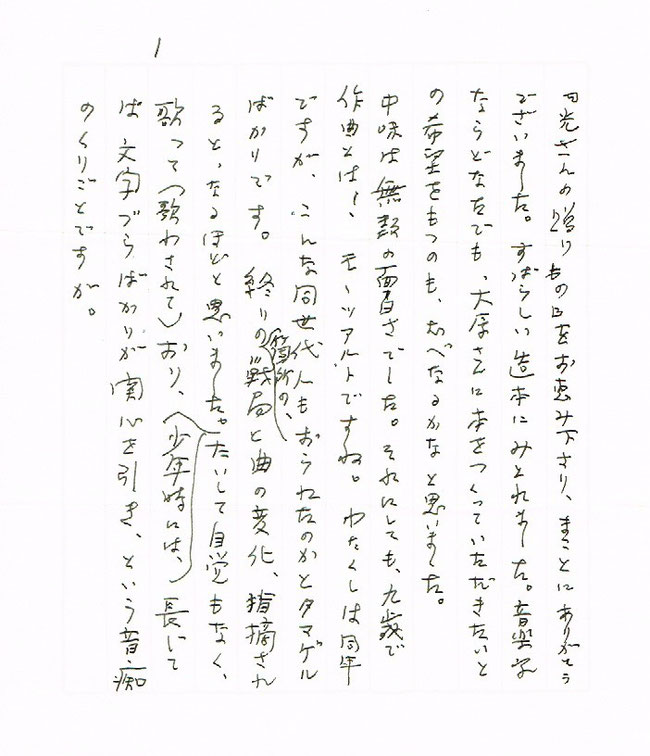 1
さんの贈りもの日をお恵み下さり、まことにありがとう
ございました。すばらしい造本にみとれました。音楽
ならどなたでも、大さんに本をつくっていただきたいと
の希望をもつのも、むべなるかなと思いました。
中味は無類の面白さでした。それにしても、九歳で
作曲とは!、モーツアルトですね。わたくしは同年
ですが、こんな同世代人もおられたのかとタマゲル
ばかりです。終りの箇所の、戦局と曲の変化、指摘され
ると、なるほどと思いました。たいして自覚もなく、
歌って(歌わされて)おり、少年時には、長じて
は文字づらばかりが関心を引き、という音痴
のくりごとですが。